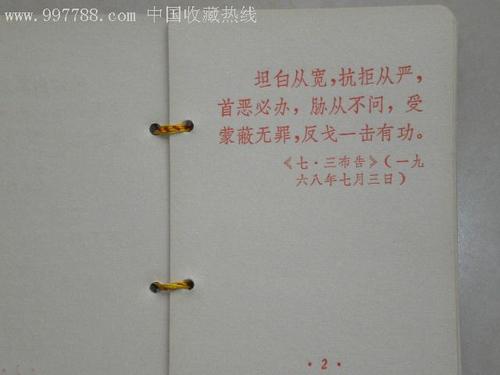 www.997788.com 中国收藏热线
坦白从宽,抗拒从严,
首恶必办,胁从不问,受
蒙蔽无罪,反戈一击有功。
《七·三布告》(一九
六八年七月三日)
·2·